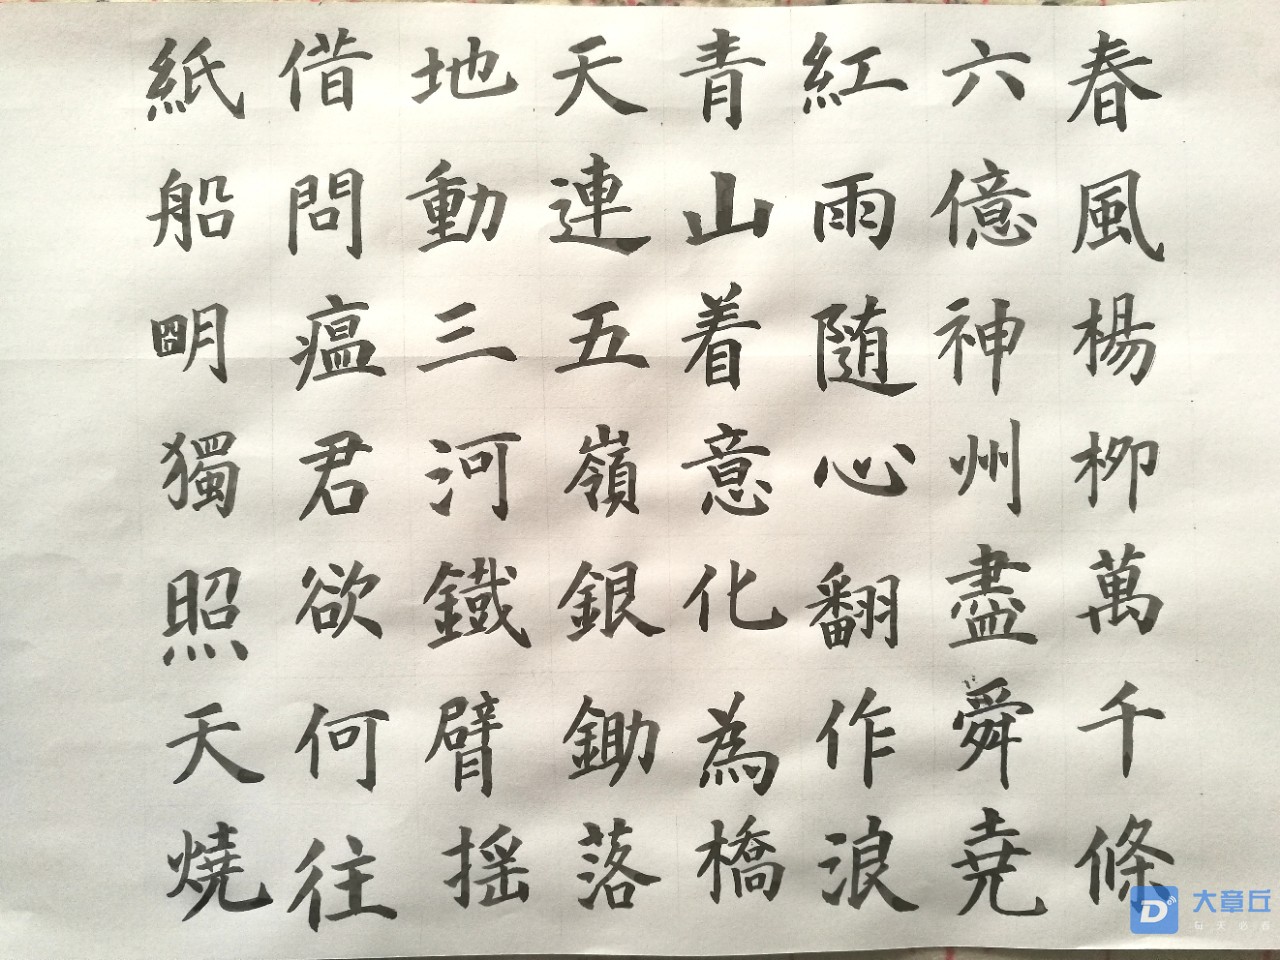 春風楊柳萬千條
六億神州盡舜堯
紅雨随心翻作浪
青山着意化為橋
天連五嶺銀鋤落
地動三河鐵臂摇
借問瘟君欲何往
紙船明獨照天燒
大章丘